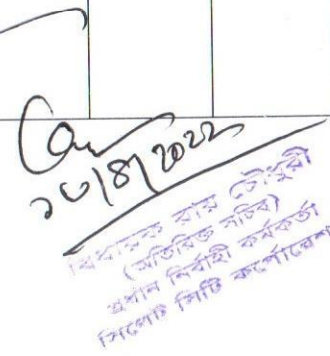 ২৮/৪/২০২২
বিধায়ক রায় চৌধুরী
(অতিরিক্ত সচিব)
প্রধান নির্বাহী কর্মকর্তা
সিলেট সিটি কর্পোরেশন